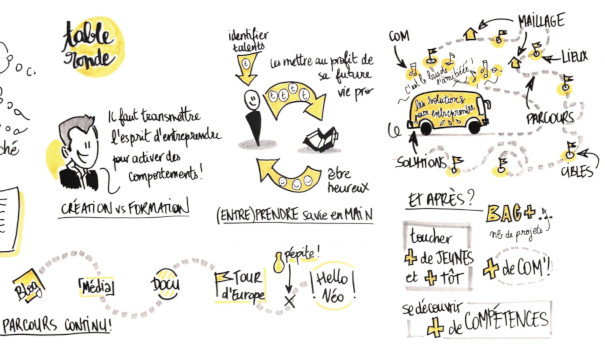 table
ronde
Il faut transmettre
l'esprit d'entreprendre
pour activer des
comportements !
CRÉATION vs FORMATION
identifier
talents
les mettre au profit de
sa future
vie pro
être
heureux
(ENTRE)PRENDRE sa vie en MAIN
COM
MAILLAGE
LIEUX
PARCOURS
CIBLES
SOLUTIONS
les solutions
pour entreprendre
ET APRÈS ?
toucher
+ de JEUNES
et + tôt
BAC+
nb de projets
+ de COM' !
se découvrir
+ de COMPÉTENCES
Blog
Média
DOCU
TOUR
d'Europe
pépite !
Hello
Néo !
PARCOURS CONTINU !